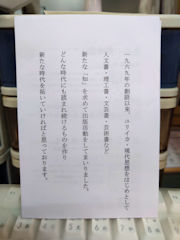 一九六九年の創設以来、ユリイカ・現代思想をはじめとして
人文書・理工書・文芸書・芸術書など
新たな「知」を求めて出版活動をしてまいりました。
どんな時代にも読まれ続けるものを作り
新たな時代を拓いていければと思っております。